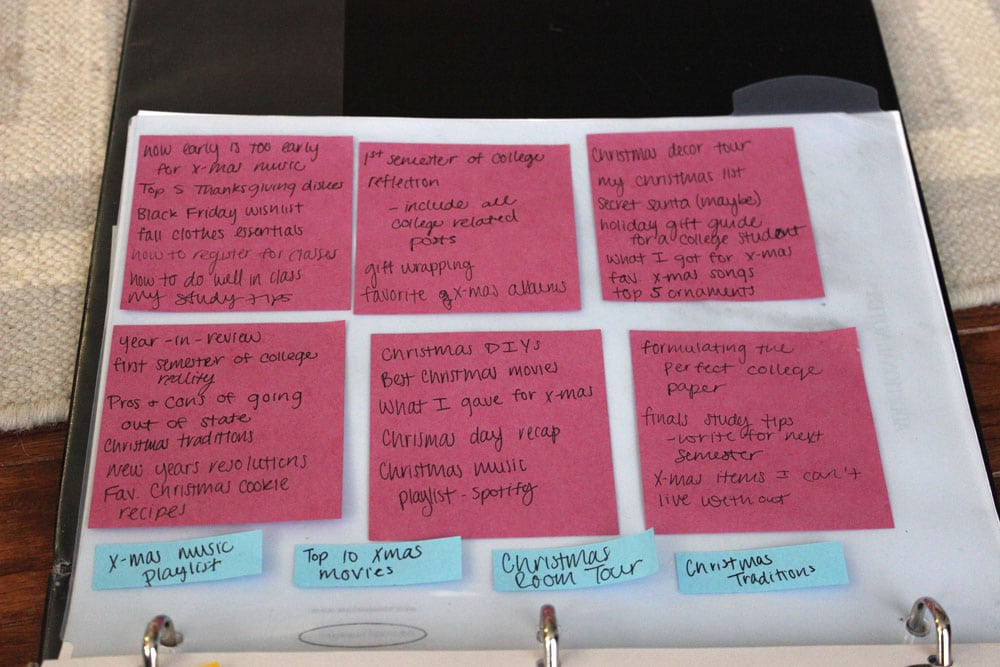 how early is too early
for x-mas music
Top 5 Thanksgiving dishes
Black Friday wishlist
fall clothes essentials
how to register for classes
how to do well in class
my study tips
1st semester of college
reflection
- include all
college related
posts
gift wrapping
favorite X-mas albums
Christmas decor tour
my christmas list
secret santa (maybe)
holiday gift guide
for a college student
what I got for x-mas
fav. x-mas songs
top 5 ornaments
year-in-review
first semester of college
reality
Pros + Cons of going
out of state
Christmas traditions
new years resolutions
Fav. Christmas cookie
recipes
Christmas DIYs
Best Christmas movies
What I gave for x-mas
Chrismas day recap
Christmas music
playlist - spotify
formulating the
perfect college
paper
finals study tips
- write for next
semester
X-mas items I can't
live without
X-mas music
playlist
Top 10 Xmas
movies
Christmas
Room Tour
Christmas
Traditions